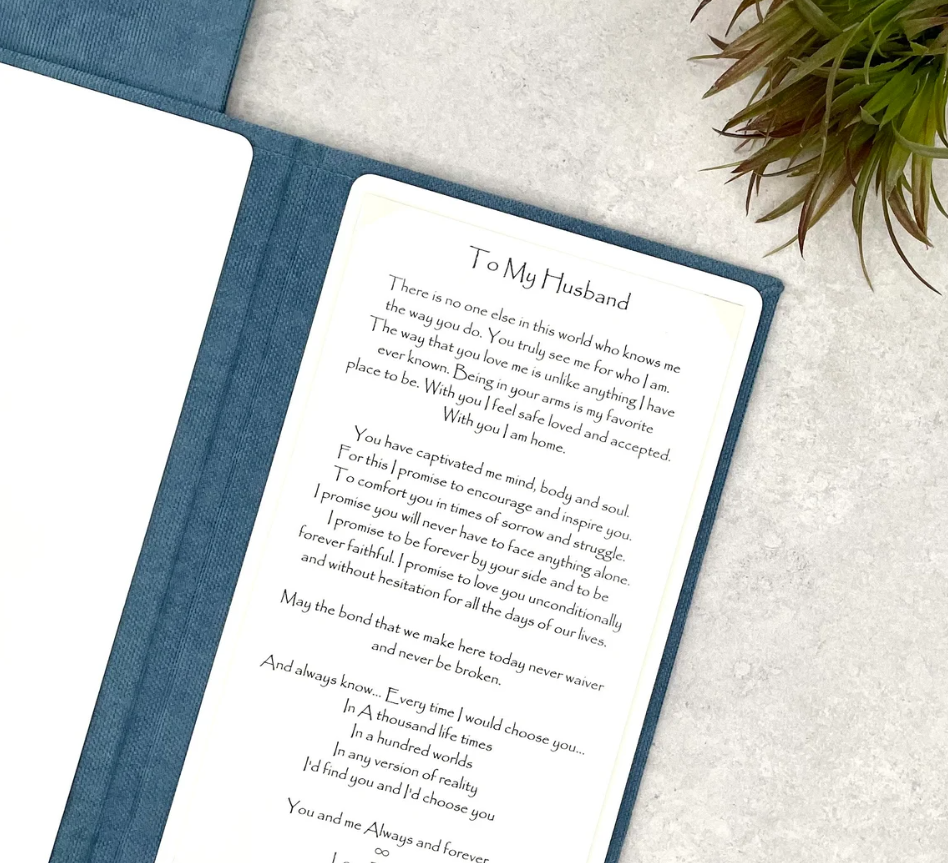 To My Husband
There is no one else in this world who knows me
the way you do. You truly see me for who I am.
The way that you love me is unlike anything I have
ever known. Being in your arms is my favorite
place to be. With you I feel safe loved and accepted.
With you I am home.
You have captivated me mind, body and soul.
For this I promise to encourage and inspire you.
To comfort you in times of sorrow and struggle.
I promise you will never have to face anything alone.
I promise to be forever by your side and to be
forever faithful. I promise to love you unconditionally
and without hesitation for all the days of our lives.
May the bond that we make here today never waiver
and never be broken.
And always know... Every time I would choose you...
In A thousand life times
In a hundred worlds
In any version of reality
I'd find you and I'd choose you
You and me Always and forever
∞